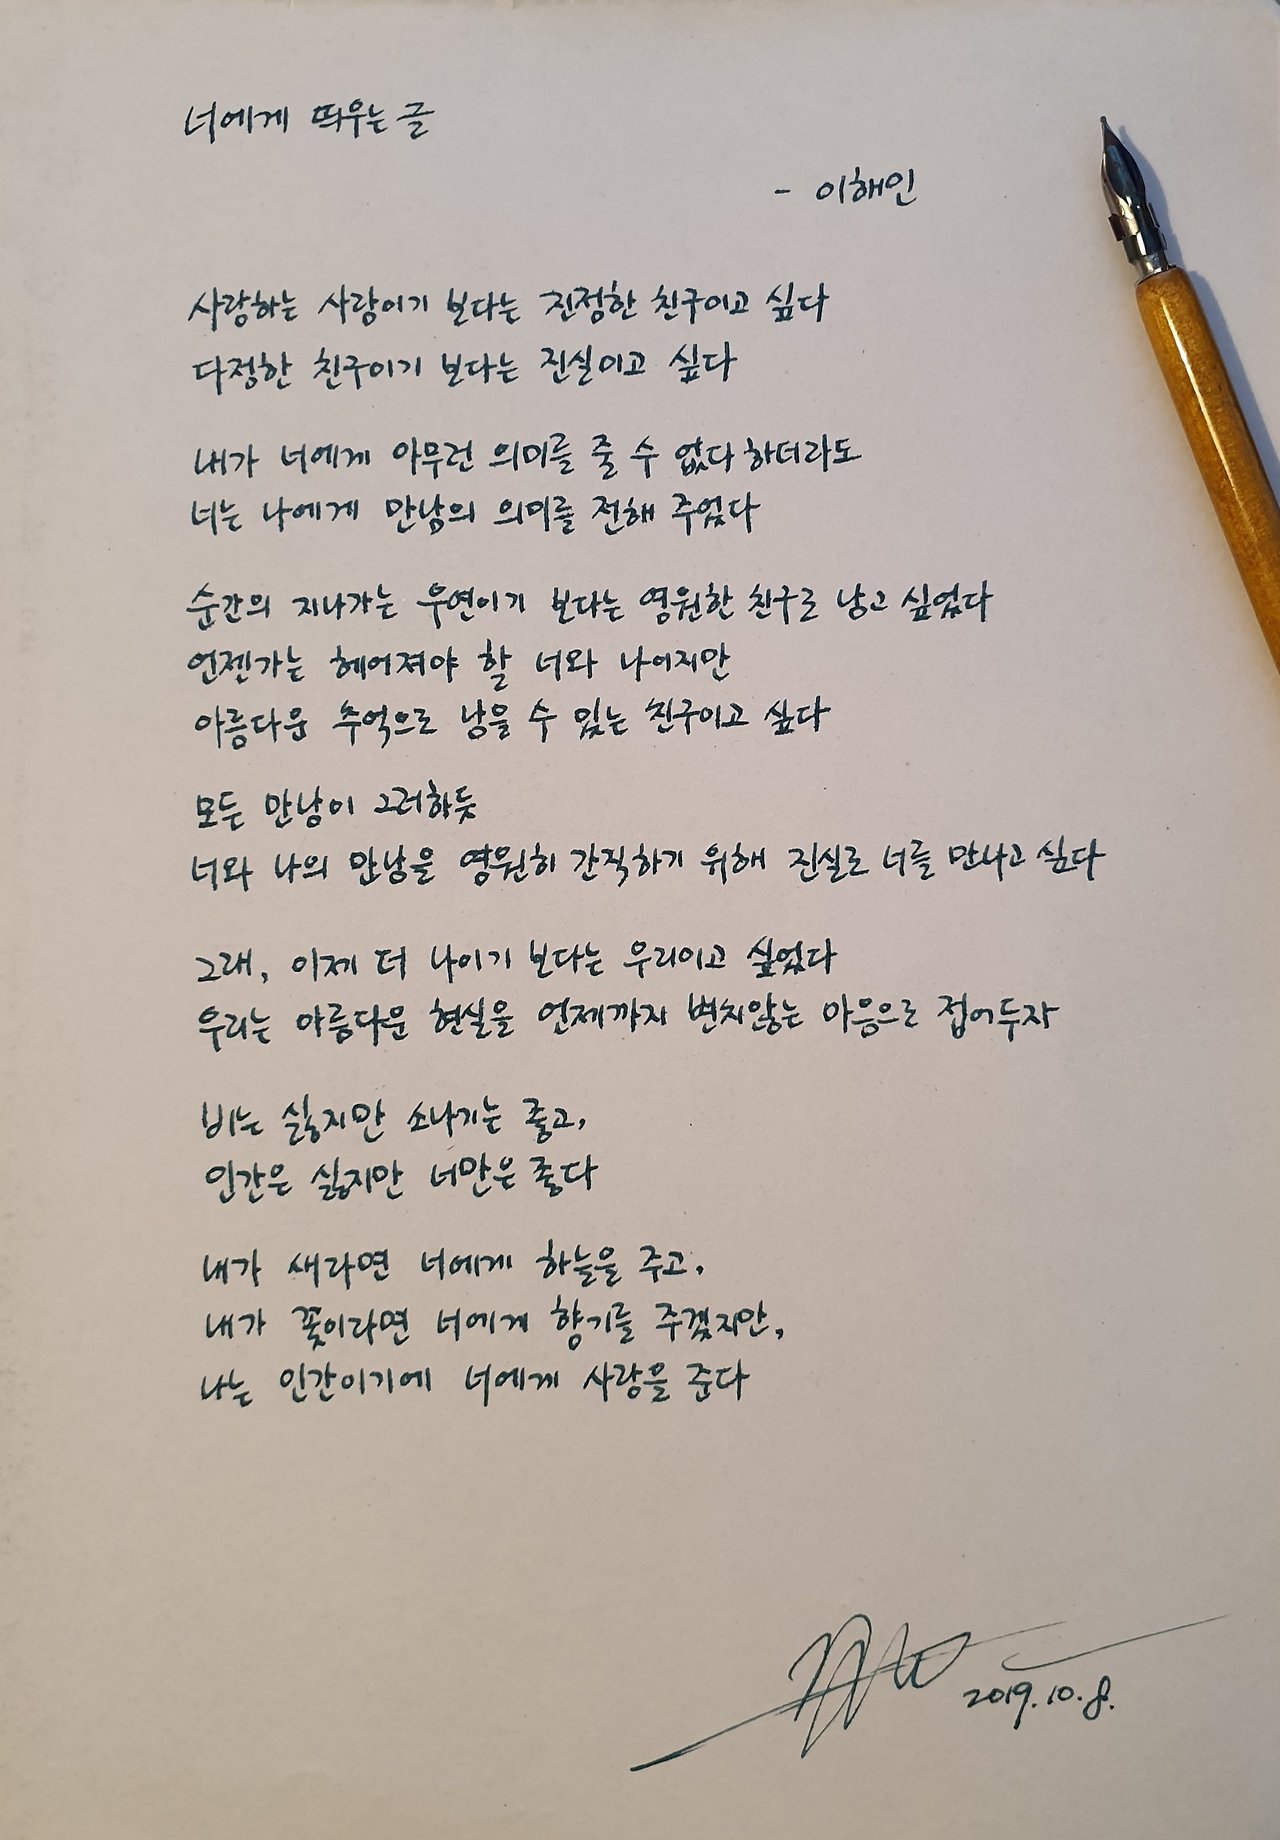 너에게 띄우는 글
- 이해인
사랑하는 사람이기 보다는 진정한 친구이고 싶다
다정한 친구이기 보다는 진실이고 싶다
내가 너에게 아무런 의미를 줄 수 없다 하더라도
너는 나에게 만남의 의미를 전해 주었다
순간의 지나가는 우연이기 보다는 영원한 친구로 남고 싶었다
언젠가는 헤어져야 할 너와 나이지만
아름다운 추억으로 남을 수 있는 친구이고 싶다
모든 만남이 그러하듯
너와 나의 만남을 영원히 간직하기 위해 진실로 너를 만나고 싶다
그래, 이제 더 나이기 보다는 우리이고 싶었다
우리는 아름다운 현실을 언제까지 변치않는 마음으로 접어두자
비는 싫지만 소나기는 좋고,
인간은 싫지만 너만은 좋다
내가 새라면 너에게 하늘을 주고,
내가 꽃이라면 너에게 향기를 주겠지만,
나는 인간이기에 너에게 사랑을 준다
2019.10.8.